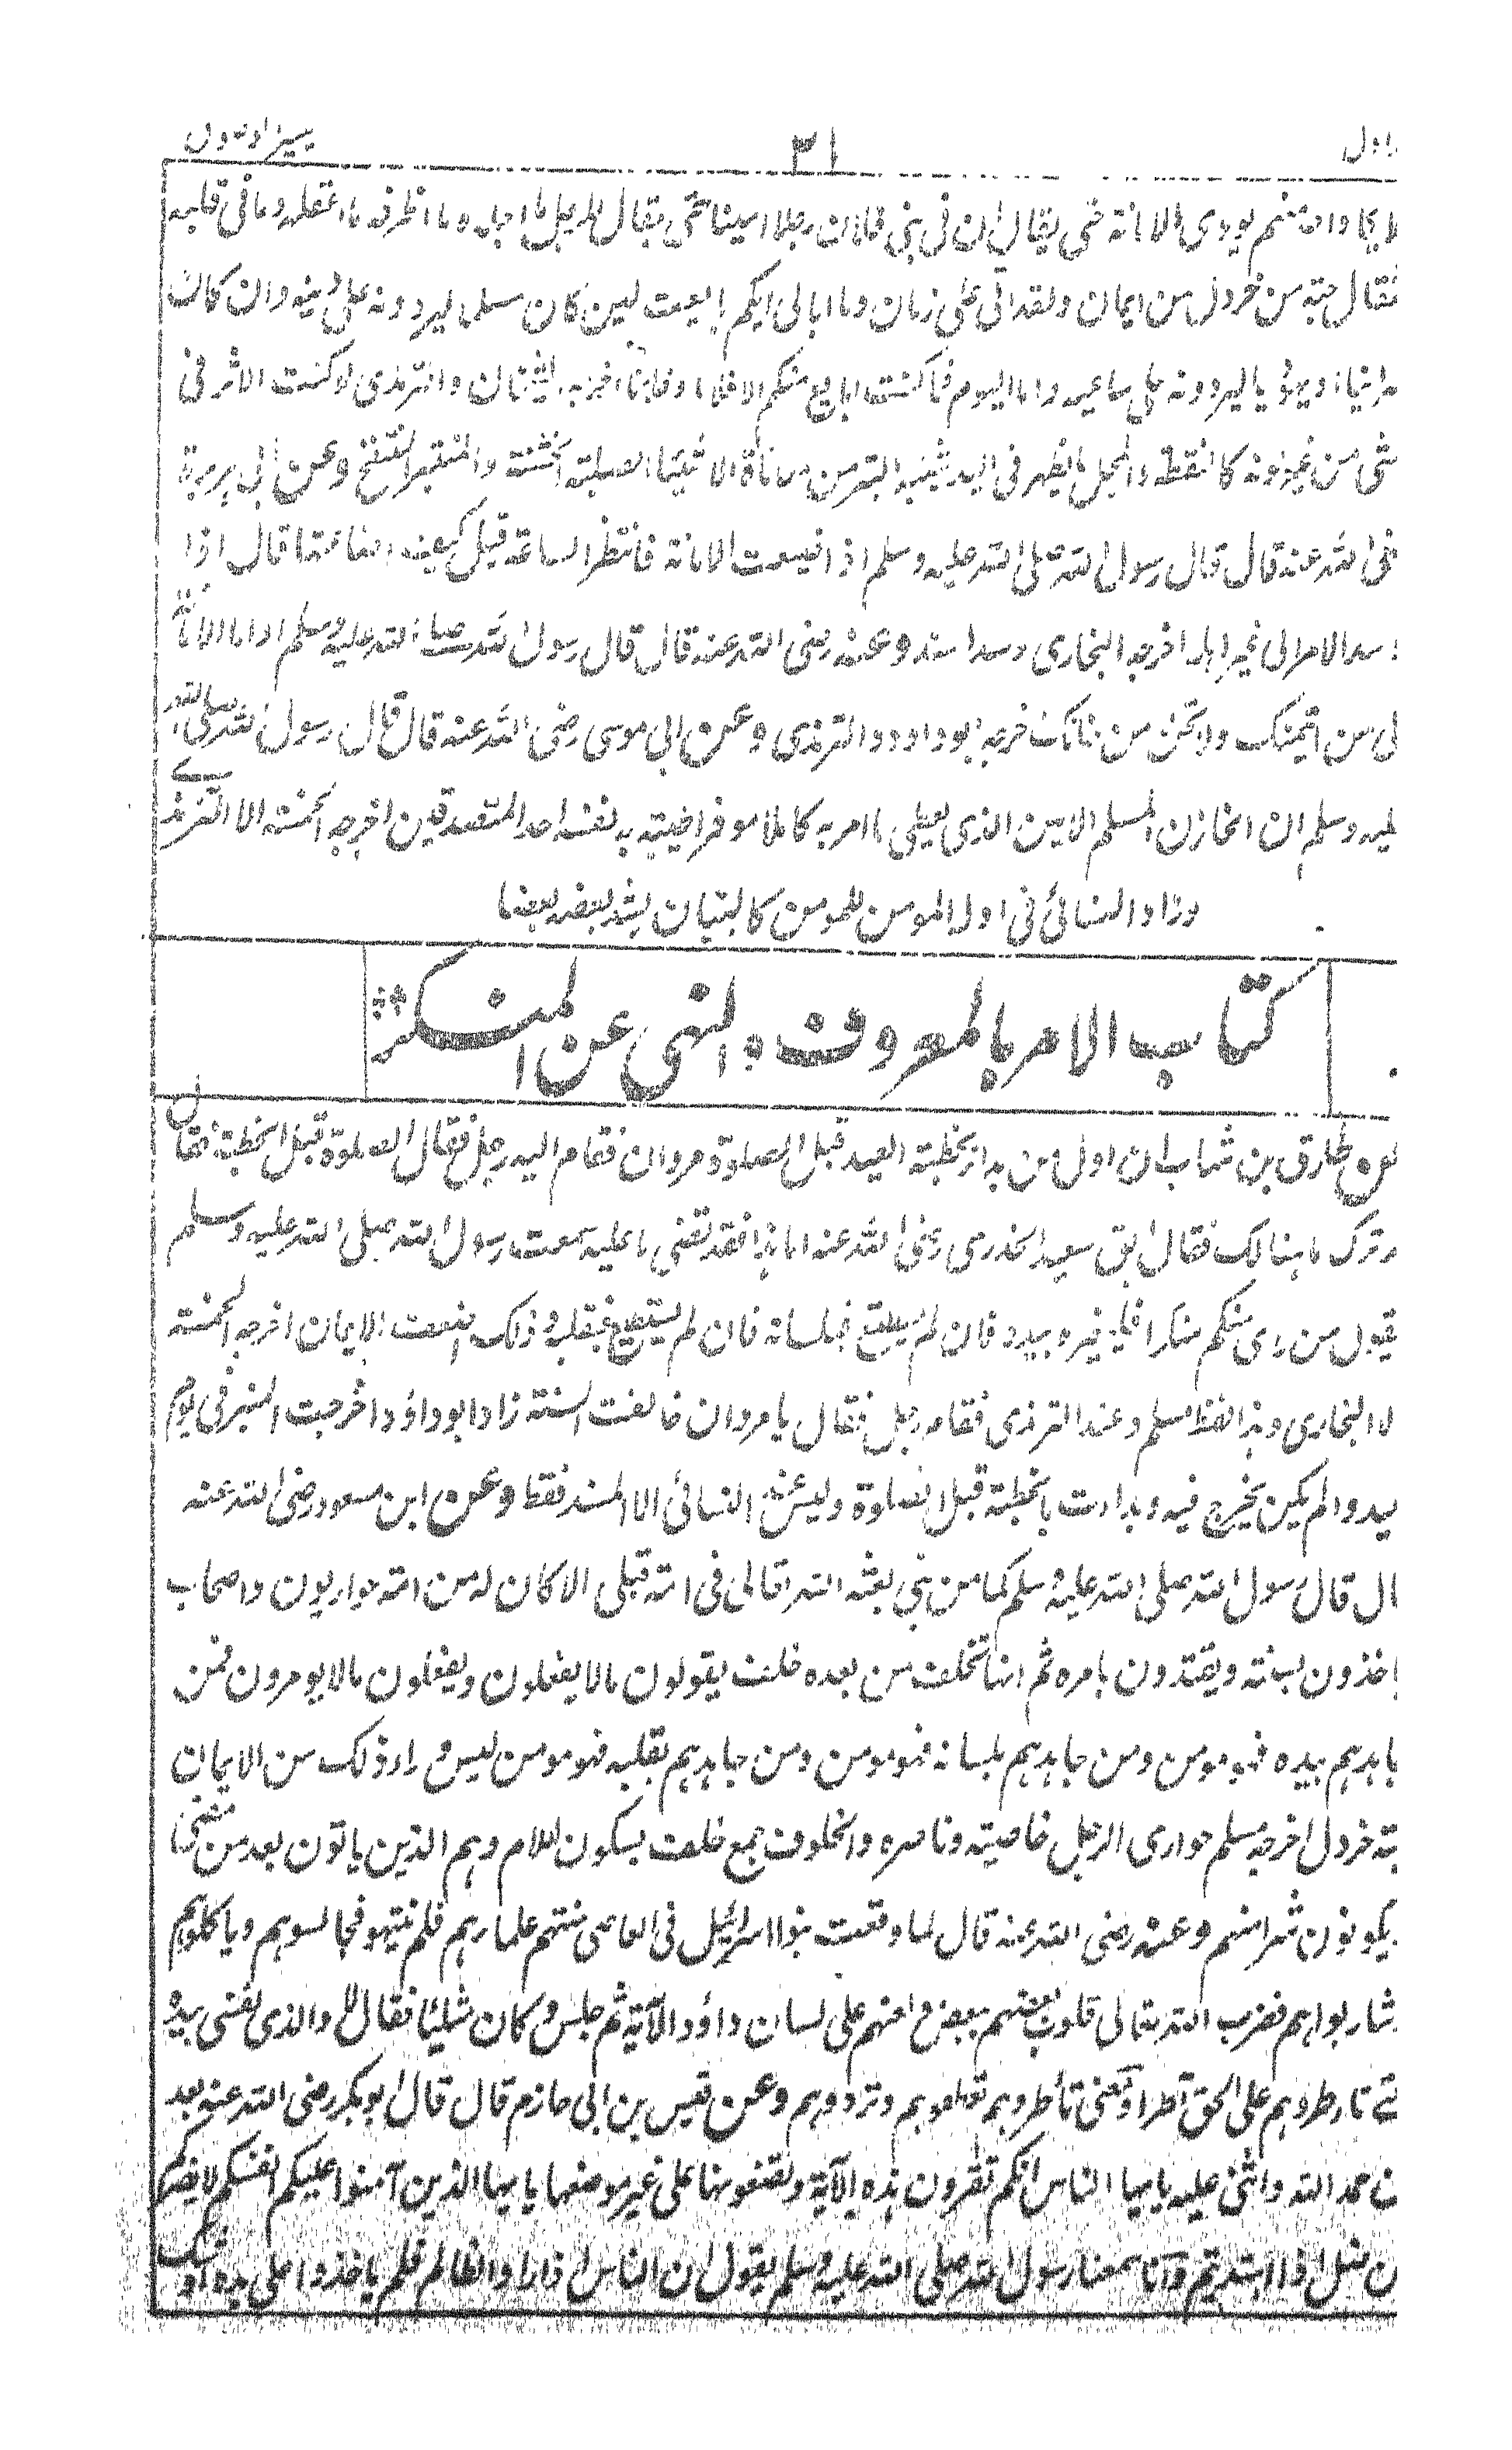 ٣١
لا يكاد احد منهم يودى الامانة حتى يقال ان فى بنى فلان رجلا امينا حتى يقال للرجل ما اجلده وما اظرفه ما اعقله وما فى قلبه
مثقال حبة من خردل من ايمان ولقد اتى على زمان وما ابالى ايكم بايعت لين كان مسلما ليردنه على دينه وان كان
نصرانيا او يهوديا ليردنه على ساعيه واما اليوم فما كنت ابايع منكم الا فلانا وفلانا اخرجه الشيخان والترمذى الوكت الاثر فى
شى من غير لونه كالنقطة والمجل ما يظهر فى اليد الاشياء الصلبة الخشنة والمنتبر المنتفخ وعن ابى هريرة
رضى الله عنه قال قال رسول الله صلى الله عليه وسلم اذا ضيعت الامانة فانتظر الساعة قيل كيف اضاعتها قال اذا
وسد الامر الى غير اهله اخرجه البخارى وسد اسند وعنه رضى الله عنه قال قال رسول الله صلى الله عليه وسلم اد الامانة
الى من ائتمنك ولا تخن من خانك اخرجه ابو داود والترمذى وعن ابى موسى رضى الله عنه قال قال رسول الله صلى الله
عليه وسلم ان الخازن المسلم الامين الذى يعطى ما امر به كاملا موفرا طيبة به نفسه احد المتصدقين اخرجه الخمسة الا الترمذى
وزاد النسائى فى اوله المومن للمومن كالبنيان يشد بعضه بعضا
كتاب الامر بالمعروف والنهى عن المنكر
عن طارق بن شهاب ان اول من بدأ بخطبة العيد قبل الصلوة مروان فقام اليه رجل فقال الصلوة قبل الخطبة فقال
قد ترك ما هنالك فقال ابو سعيد الخدرى رضى الله عنه اما هذا فقد قضى ما عليه سمعت رسول الله صلى الله عليه وسلم
يقول من راى منكم منكرا فليغيره بيده فان لم يستطع فبلسانه فان لم يستطع فبقلبه وذلك اضعف الايمان اخرجه الخمسة
الا البخارى وهذا لفظ مسلم وعند الترمذى فقام رجل فقال يا مروان خالفت السنة زاد ابو داؤد اخرجت المنبر فى يوم
عيد ولم يكن يخرج فيه وبدات بالخطبة قبل الصلوة وليس عند النسائى الا المسند فقط وعن ابن مسعود رضى الله عنه
قال قال رسول الله صلى الله عليه وسلم كما من نبى بعثه الله تعالى فى امة قبلى الا كان له من امته حواريون واصحاب
ياخذون بسنته ويقتدون بامره ثم انها تخلف من بعده خلف يقولون مالا يفعلون ويفعلون مالا يومرون فمن
جاهدهم بيده فهو مومن ومن جاهدهم بلسانه فهو مومن ومن جاهدهم بقلبه فهو مومن ليس وراء ذلك من الايمان
حبة خردل اخرجه مسلم حوارى الرجل خاصيته وناصره والخلوف جمع خلف بسكون اللام وهم الذين ياتون بعد من مضى
يكونون شرا منهم وعنه رضى الله عنه قال لما وقعت بنو اسرائيل فى المعاصى نهتهم علماءهم فلم ينتهوا فجالسوهم وياكلوهم
وشاربواهم فضرب الله تعالى قلوب بعضهم ببعض ولعنهم على لسان داؤد الآية ثم جلس وكان متكئا فقال لا والذى نفسى بيده
حتى تاطروهم على الحق اطرا ومعنى تأطروهم تعطفوهم وتردوهم وعن قيس بن ابى حازم قال قال ابوبكر رضى الله عنه بعد
ان حمد الله واثنى عليه يا ايها الناس انكم تقرون هذه الآية وتضعونها على غير موضعها يا ايها الذين آمنوا عليكم انفسكم لا يضركم
من ضل اذا اهتديتم وانا سمعنا رسول الله صلى الله عليه وسلم يقول ان الناس اذا راوا الظالم فلم ياخذوا على يده اوشك